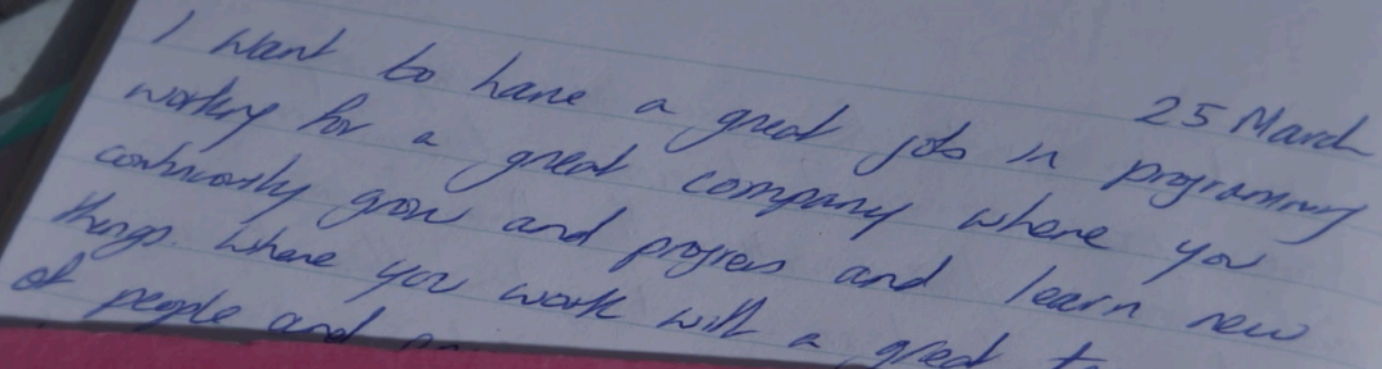 25 March
I want to have a great job in programming
working for a great company where you
continuously grow and progress and learn new
things. Where you work with a great
of people and